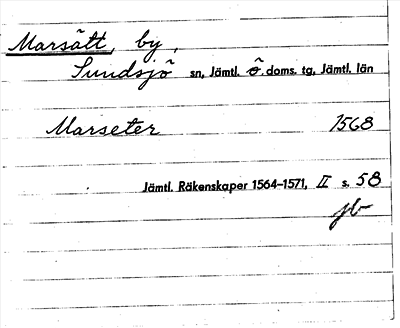 Marsätt, by,
Sundsjö sn, Jämtl. ö. doms. tg, Jämtl. län
Marseter 1568
Jämtl. Räkenskaper 1564–1571, II s. 58